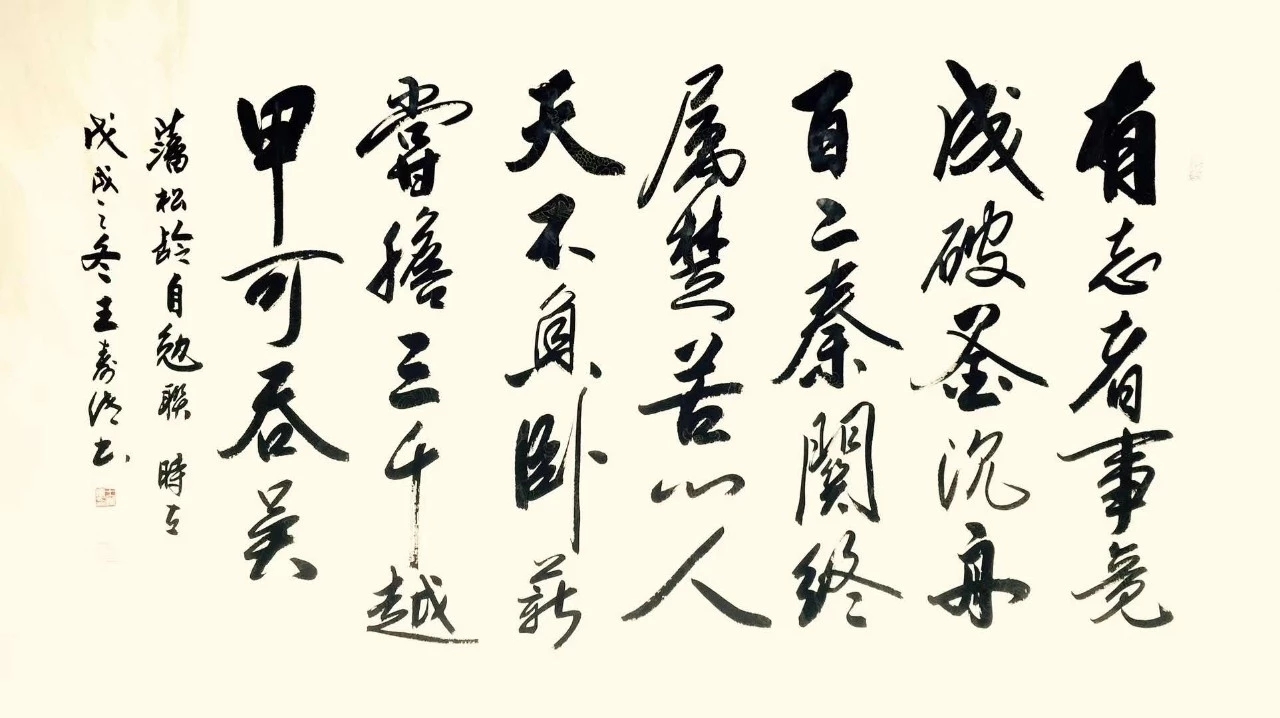 有志者事竟
成破釜沉舟
百二秦關終
属楚苦心人
天不負卧薪
嘗膽三千越
甲可吞吴
蒲松龄自勉聯 時在
戊戌之冬王寿书